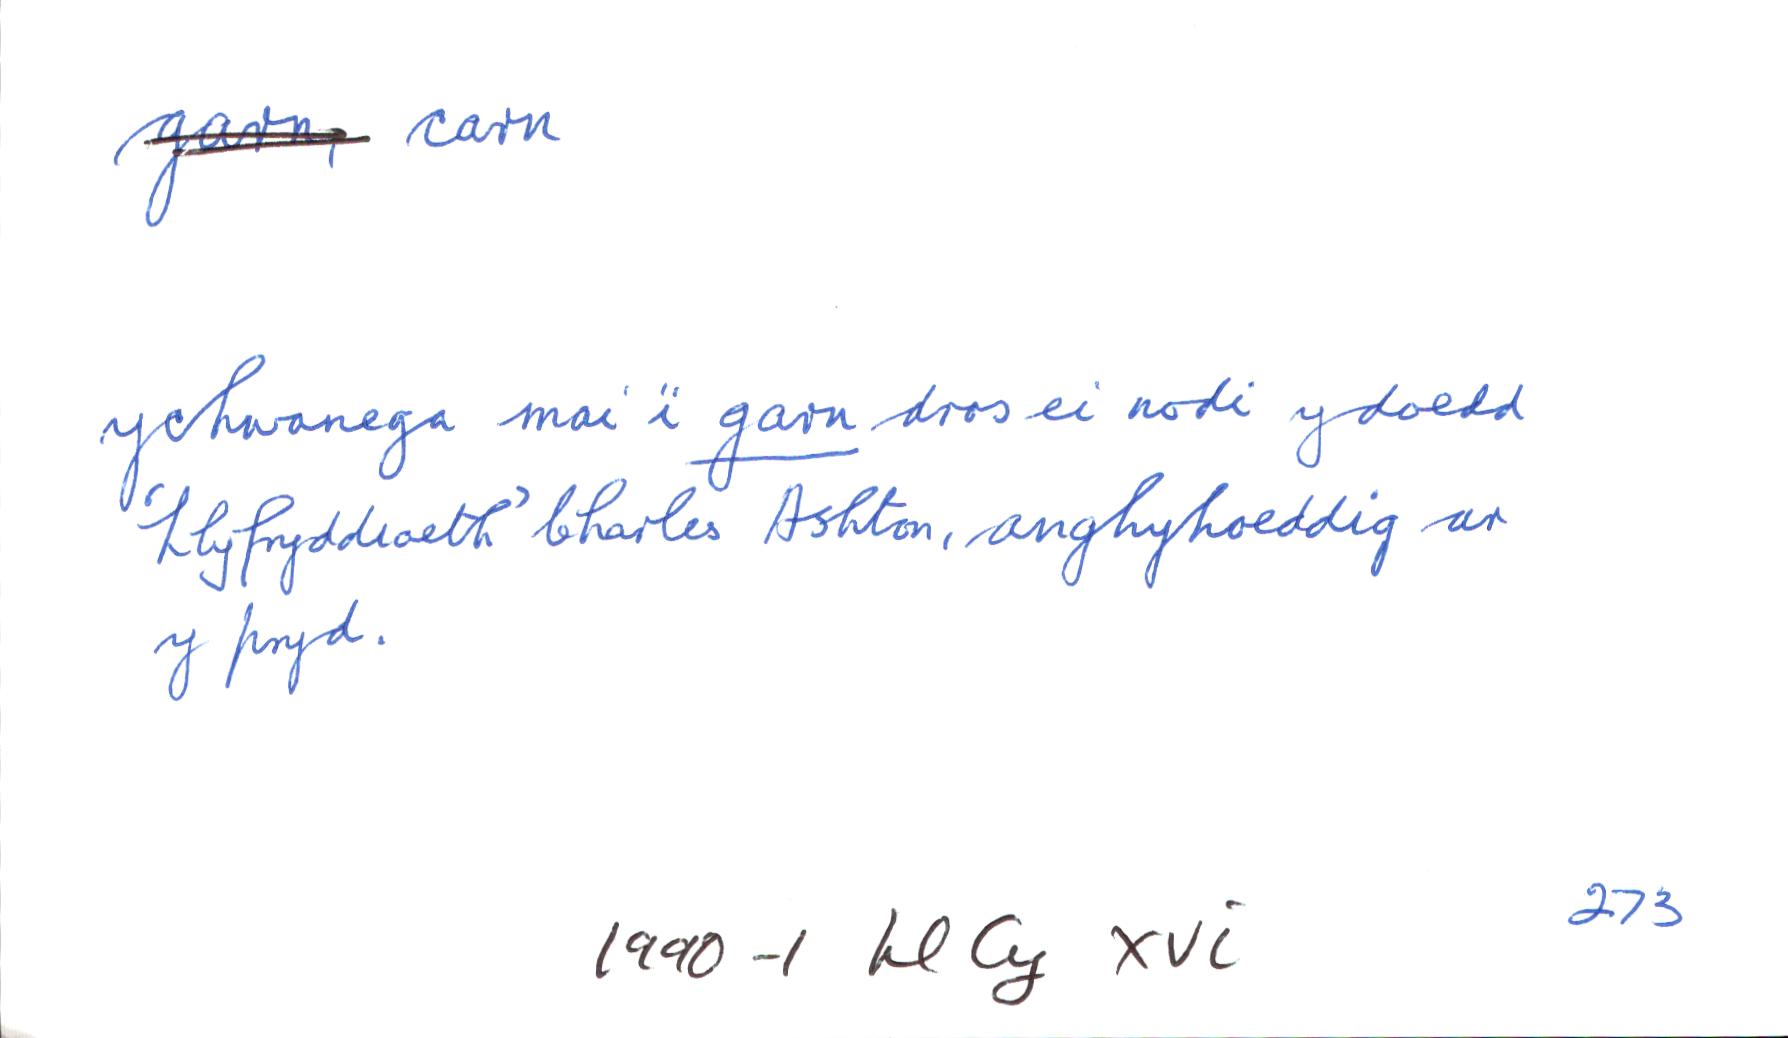 garn, carn
ychwanega mai i'i garn dros ei nodi ydoedd
'Llyfryddiaeth' Charles Ashton, anghyhoeddig ar
y pryd.
273
1990-1 Ll Cy xvi